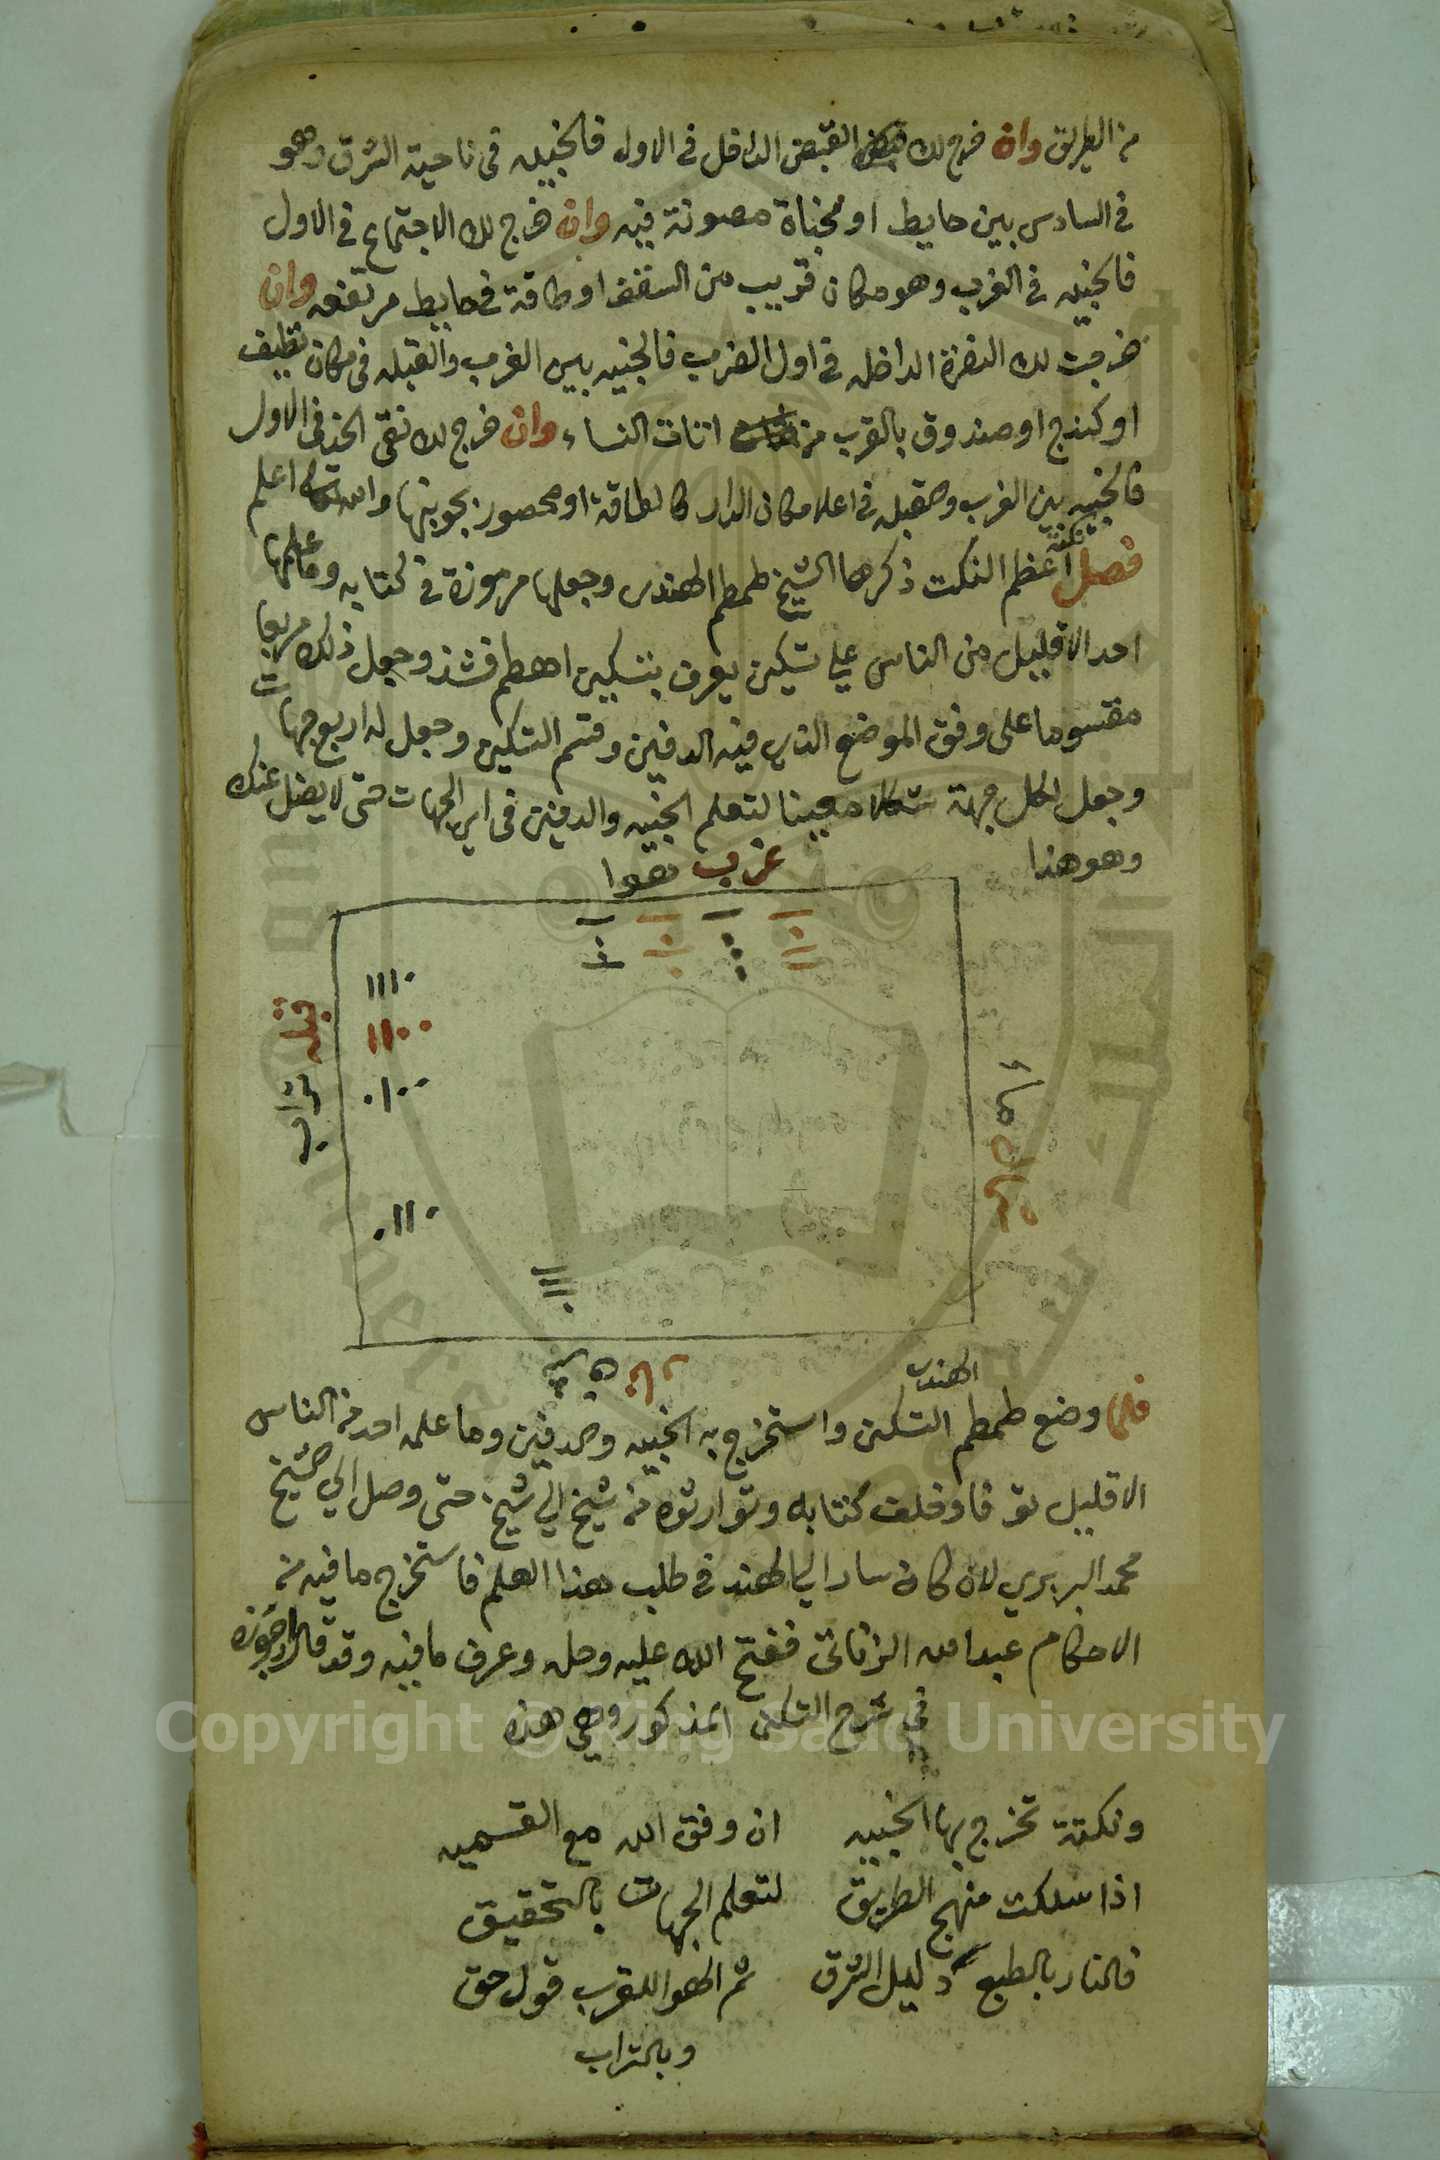 من الطريق وان خرج لك القبض الداخل في الاول فالخبيه في ناحية الشرق وهو
في السادس بين حايط او مخباة مصونة فيه وان خرج لك الاجتماع في الاول
فالخبيه في الغرب وهو مكان قريب من السقف او طاقة في حايط مرتفعه وان
خرجت لك النصرة الداخله في اول الضرب فالخبيه بين الغرب والقبله في مكان نظيف
او كنج او صندوق بالقرب من اثاث النساء وان خرج لك نقي الخد في الاول
فالخبيه بين الغرب والقبله في اعلا مكان الدار كالطاقة او محصور بجوبتها والله تعالى اعلم
فصل نكته اعظم النكت ذكرها الشيخ طمطم الهندي وجعلها مرموزة في كتابه وما علمها
احد الا قليل من الناس علي تسكين يعرف بتسكين اهطم فشذ وجعل ذلك مربعا
مقسوما على وفق الموضع الذي فيه الدفين وقسم التسكين وجعل له اربع جهات
وجعل لكل جهة شكلا معينا لتعلم الخبيه والدفين في اي الجهات حتى لا يضل عنك
وهو هذا
غرب هوا
قبله تراب
شمال ماء
شرق نار
فلما وضع طمطم الهندي التسكين واستخرج به الخبيه والدفين وما علمه احد من الناس
الا قليل توفا وخلف كتابه وتوارثوه من شيخ الي شيخ حتى وصل الي الشيخ
محمد البربري لان كان سار الي الهند في طلب هذا العلم فاستخرج ما فيه من
الاحكام عبد الله الزناتي ففتح الله عليه وحله وعرف ما فيه وقد قال ارجوزة
في شرح التسكين المذكور وهي هذه
ونكتة تخرج بها الخبيه ان وفق الله مع القسميه
اذا سلكت منهج الطريق لتعلم الجهات بالتحقيق
فالنار بالطبع دليل الشرق ثم الهوا للغرب قول حق
وبالتراب
Copyright © King Saud University